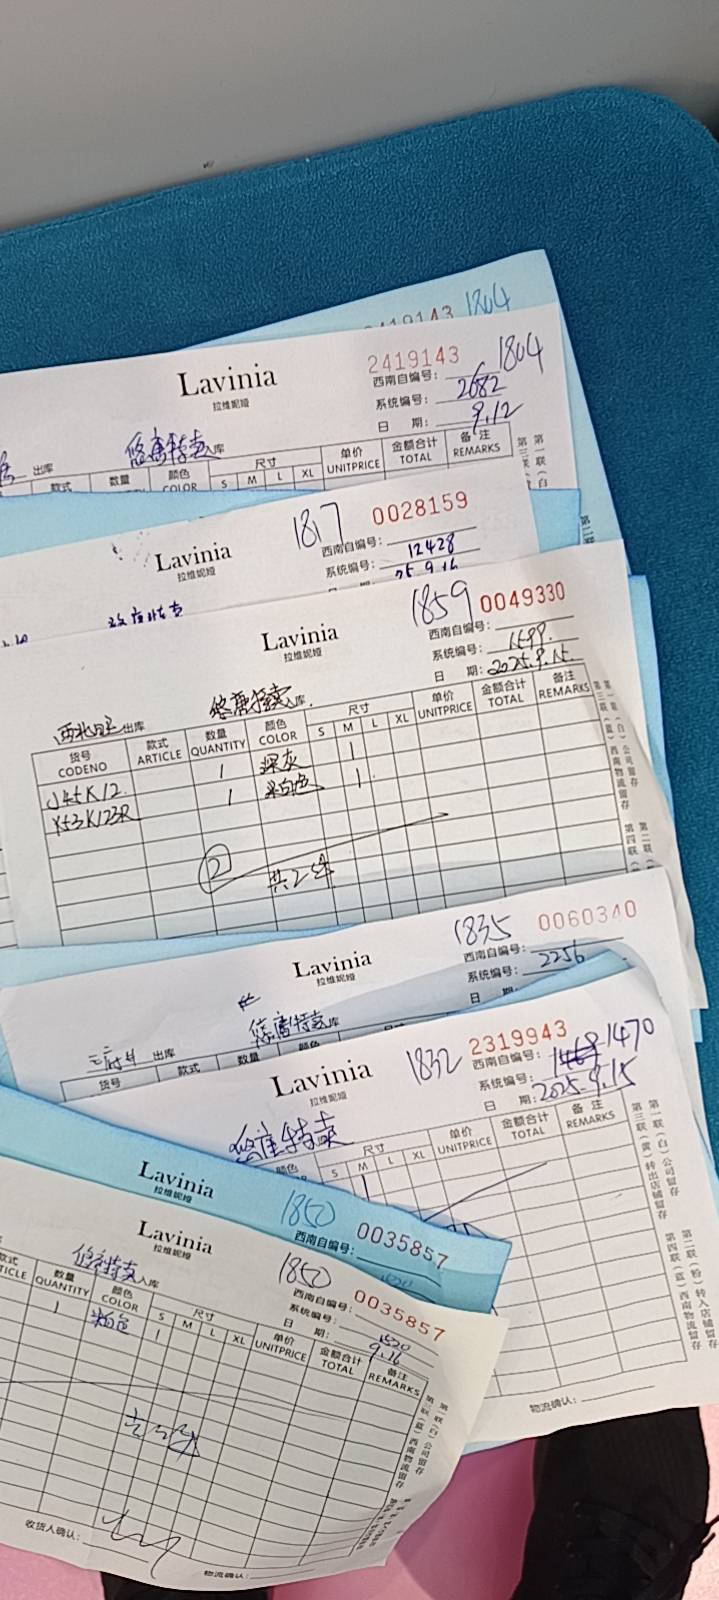 1804
2419143 1804
Lavinia
拉维妮娅
西南自编号:
系统编号: 2682
日 期: 9.12
出库 悠唐特卖 入库
款式 数量 颜色 尺寸 单价 金额合计 备注
COLOR S M L XL UNITPRICE TOTAL REMARKS
1817 0028159
Lavinia
拉维妮娅
西南自编号:
系统编号: 12428
25.9.16
1859 0049330
Lavinia
拉维妮娅
西南自编号:
系统编号: 1599.
日 期: 2025.9.15.
出库 悠唐特卖 入库.
货号 款式 数量 颜色 尺寸 单价 金额合计 备注
CODENO ARTICLE QUANTITY COLOR S M L XL UNITPRICE TOTAL REMARKS
J45K12. 1 深灰 1
X53K123R 1 米白色 1
② 共2件
1835 0060340
Lavinia
拉维妮娅
西南自编号:
系统编号: 2256
日 期:
出库 悠唐特卖 库
货号 款式 数量 颜色
1832 2319943
Lavinia
拉维妮娅
西南自编号: 1470
系统编号:
日 期: 2025.9.15
悠唐特卖
颜色 尺寸 单价 金额合计 备注
S M L XL UNITPRICE TOTAL REMARKS
第一联(白)公司留存
第三联(黄)转出店铺留存
第二联(粉)转入店铺留存
第四联(蓝)西南物流留存
物流确认:
Lavinia
拉维妮娅
1850 0035857
西南自编号:
Lavinia
拉维妮娅
1850 0035857
西南自编号:
系统编号: 1520
日 期: 9.16
悠唐特卖 入库
款式 数量 颜色 尺寸 单价 金额合计 备注
TICLE QUANTITY COLOR S M L XL UNITPRICE TOTAL REMARKS
1 1
收货人确认:
物流确认: